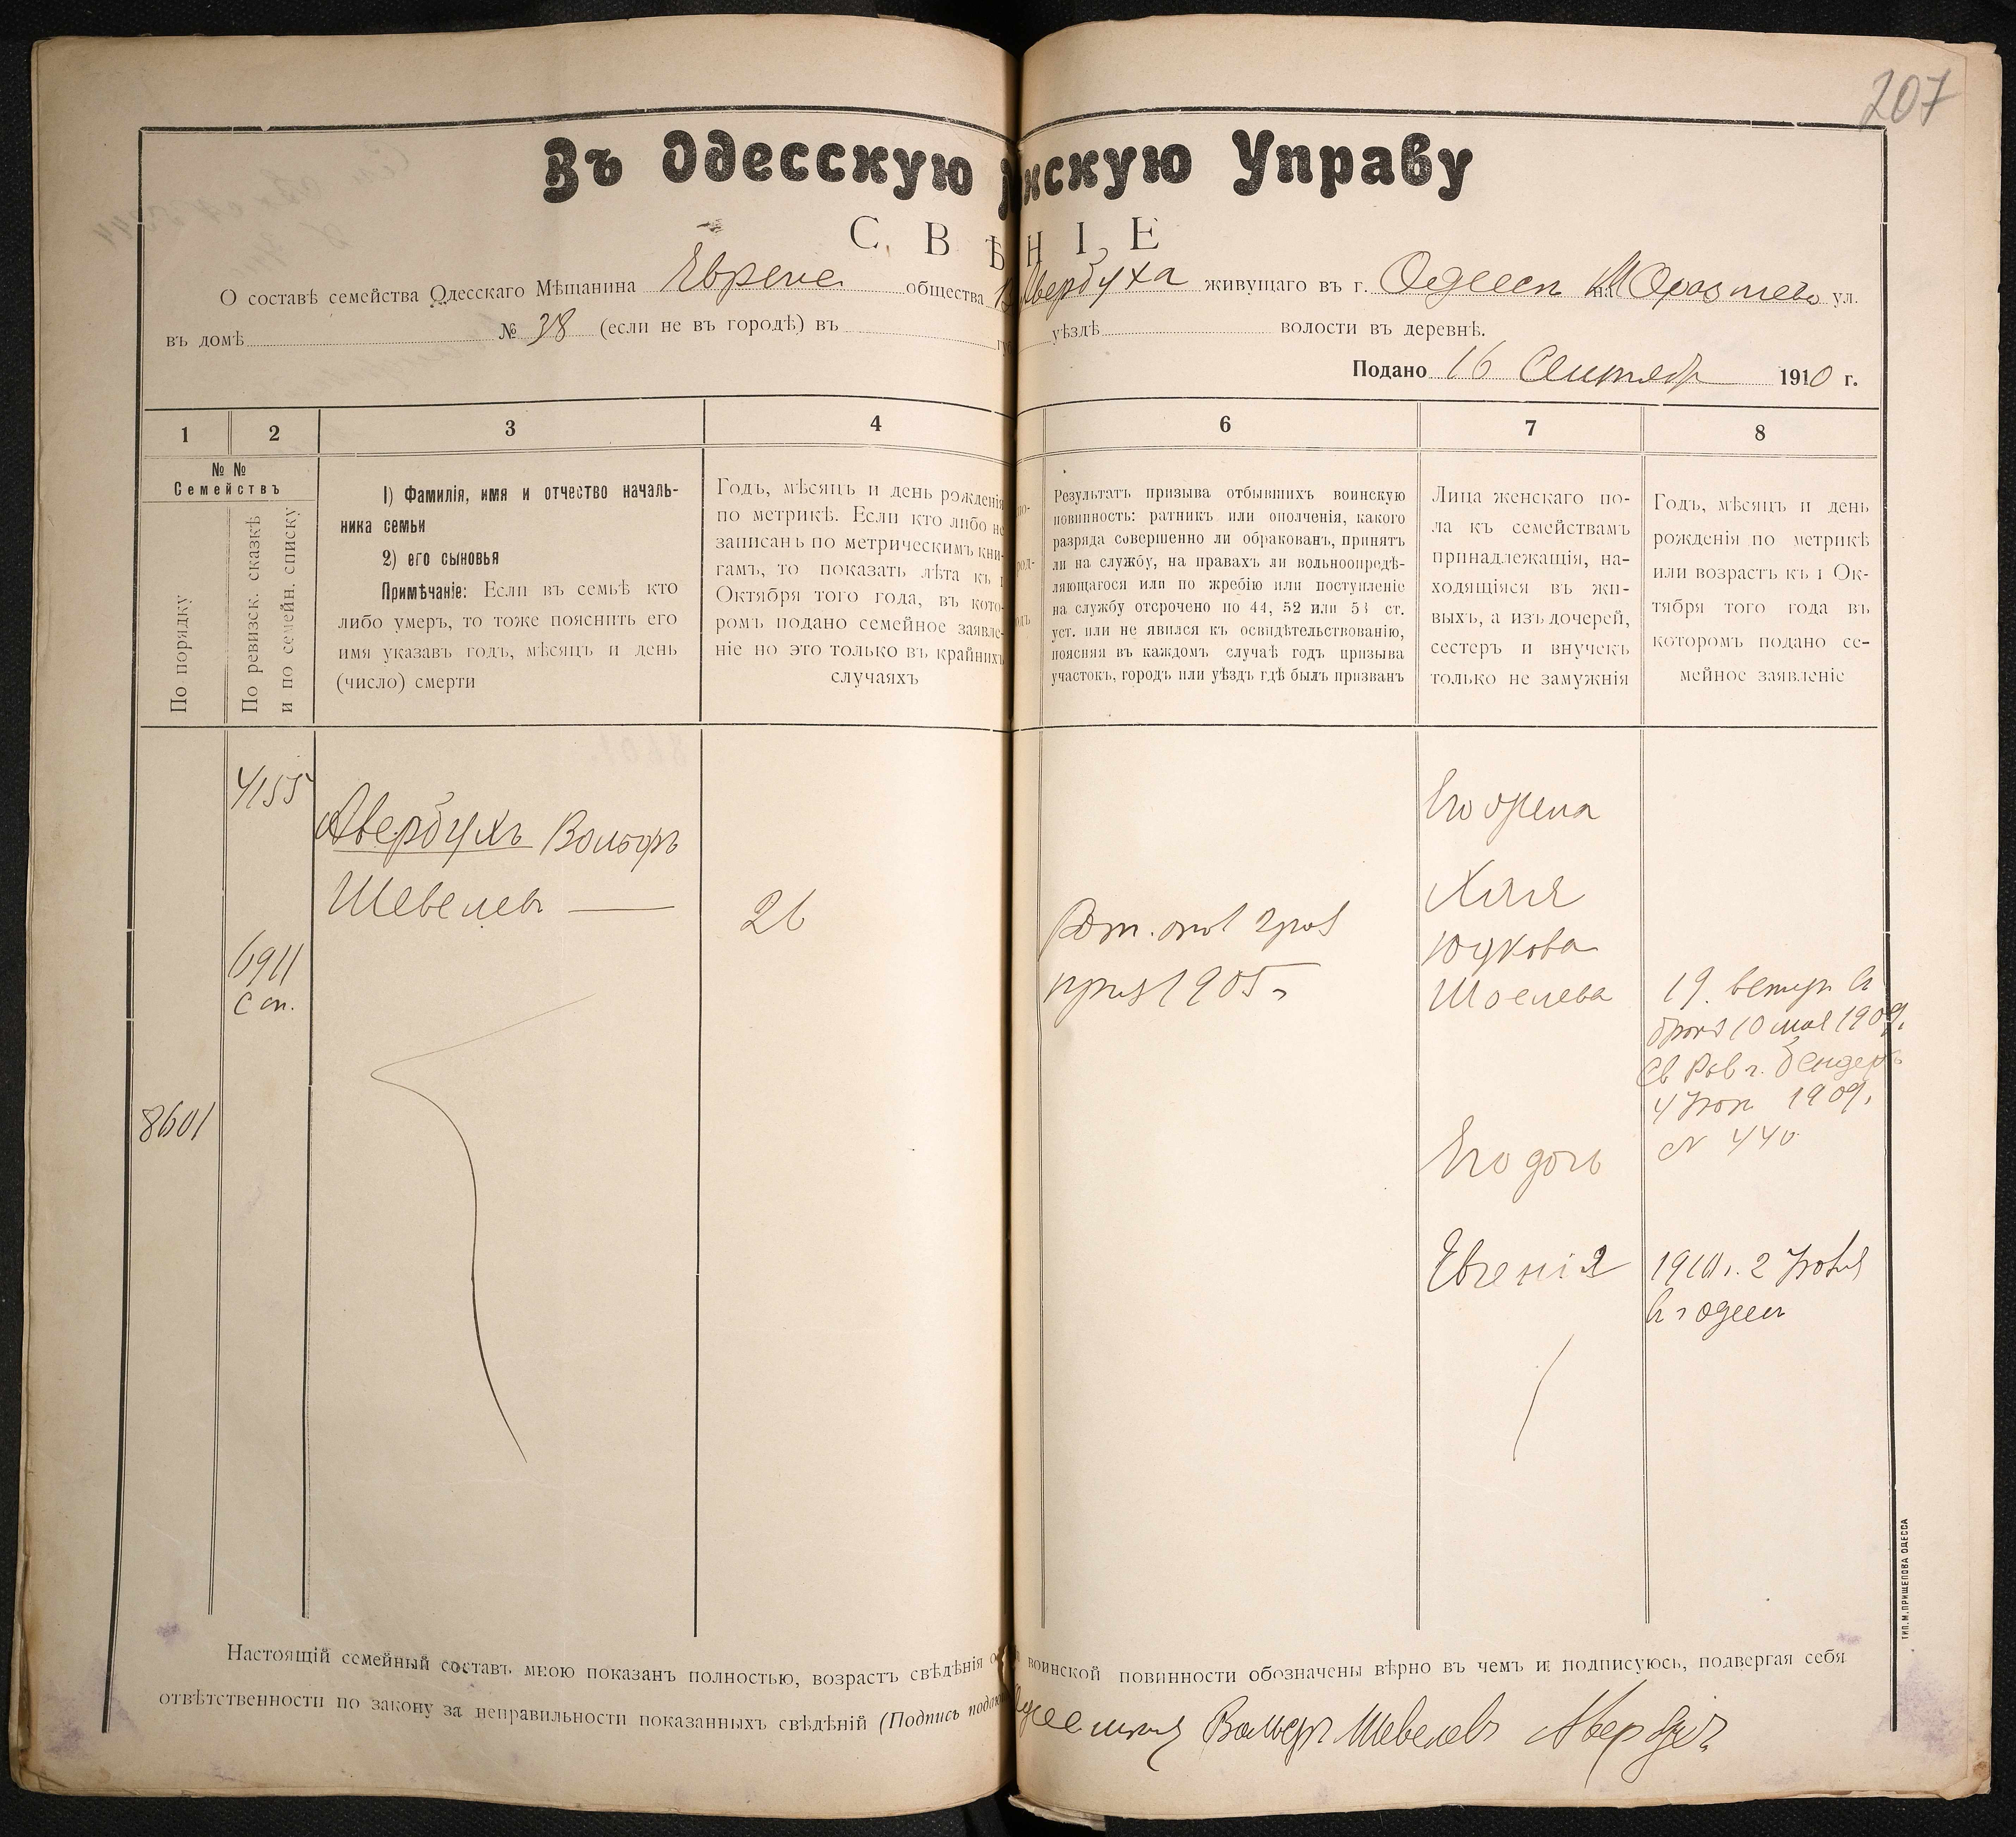 207
Въ Одесскую нскую Управу
С В Ѣ Н І Е
О составѣ семейства Одесскаго Мѣщанина Еврейс общества Авербуха живущаго въ г. Одессѣ на ул.
въ домѣ № 38 (если не въ городѣ) въ уѣздѣ волости въ деревнѣ.
Подано 16 Сентябр 1910 г.
1 2 3 4 6 7 8
№ №
Семействъ
По порядку
По ревизск. сказкѣ
и по семейн. списку
1) Фамилія, имя и отчество началь-
ника семьи
2) его сыновья
Примѣчаніе: Если въ семьѣ кто
либо умеръ, то тоже пояснить его
имя указавъ годъ, мѣсяцъ и день
(число) смерти
Годъ, мѣсяцъ и день рожденія
по метрикѣ. Если кто либо не
записанъ по метрическимъ кни-
гамъ, то показать лѣта къ 1
Октября того года, въ кото-
ромъ подано семейное заявле-
ніе но это только въ крайнихъ
случаяхъ
Результатъ призыва отбывшихъ воинскую
повинность: ратникъ или ополченія, какого
разряда совершенно ли обракованъ, принятъ
ли на службу, на правахъ ли вольноопредѣ-
ляющагося или по жребію или поступленіе
на службу отсрочено по 44, 52 или 53 ст.
уст. или не явился къ освидѣтельствованію,
поясняя въ каждомъ случаѣ годъ призыва
участокъ, городъ или уѣздъ гдѣ былъ призванъ
Лица женскаго по-
ла къ семействамъ
принадлежащія, на-
ходящіяся въ жи-
выхъ, а изъ дочерей,
сестеръ и внучекъ
только не замужнія
Годъ, мѣсяцъ и день
рожденія по метрикѣ
или возрастъ къ 1 Ок-
тября того года въ
которомъ подано се-
мейное заявленіе
4155
Авербухъ Вольфъ
Шевелевъ
26
6911
С сп.
8601
Рат. опол 2 раз
приз 1905 г
Его жена
Хая
Юдкова
Шоелева
19. вступ въ
бракъ 10 мая 1909.
Св Рав г. Бендеръ
4 Іюн 1909.
№ 440
Его дочь
Евгенія
1910 г. 2 Іюля
въ г Одессѣ
Настоящій семейный составъ мною показанъ полностью, возрастъ свѣдѣнія о воинской повинности обозначены вѣрно въ чемъ и подписуюсь, подвергая себя
отвѣтственности по закону за неправильности показанныхъ свѣдѣній (Подпись Вольфъ Шевелевъ Авербухъ
ТИП. М. ПРИЩЕПОВА ОДЕССА